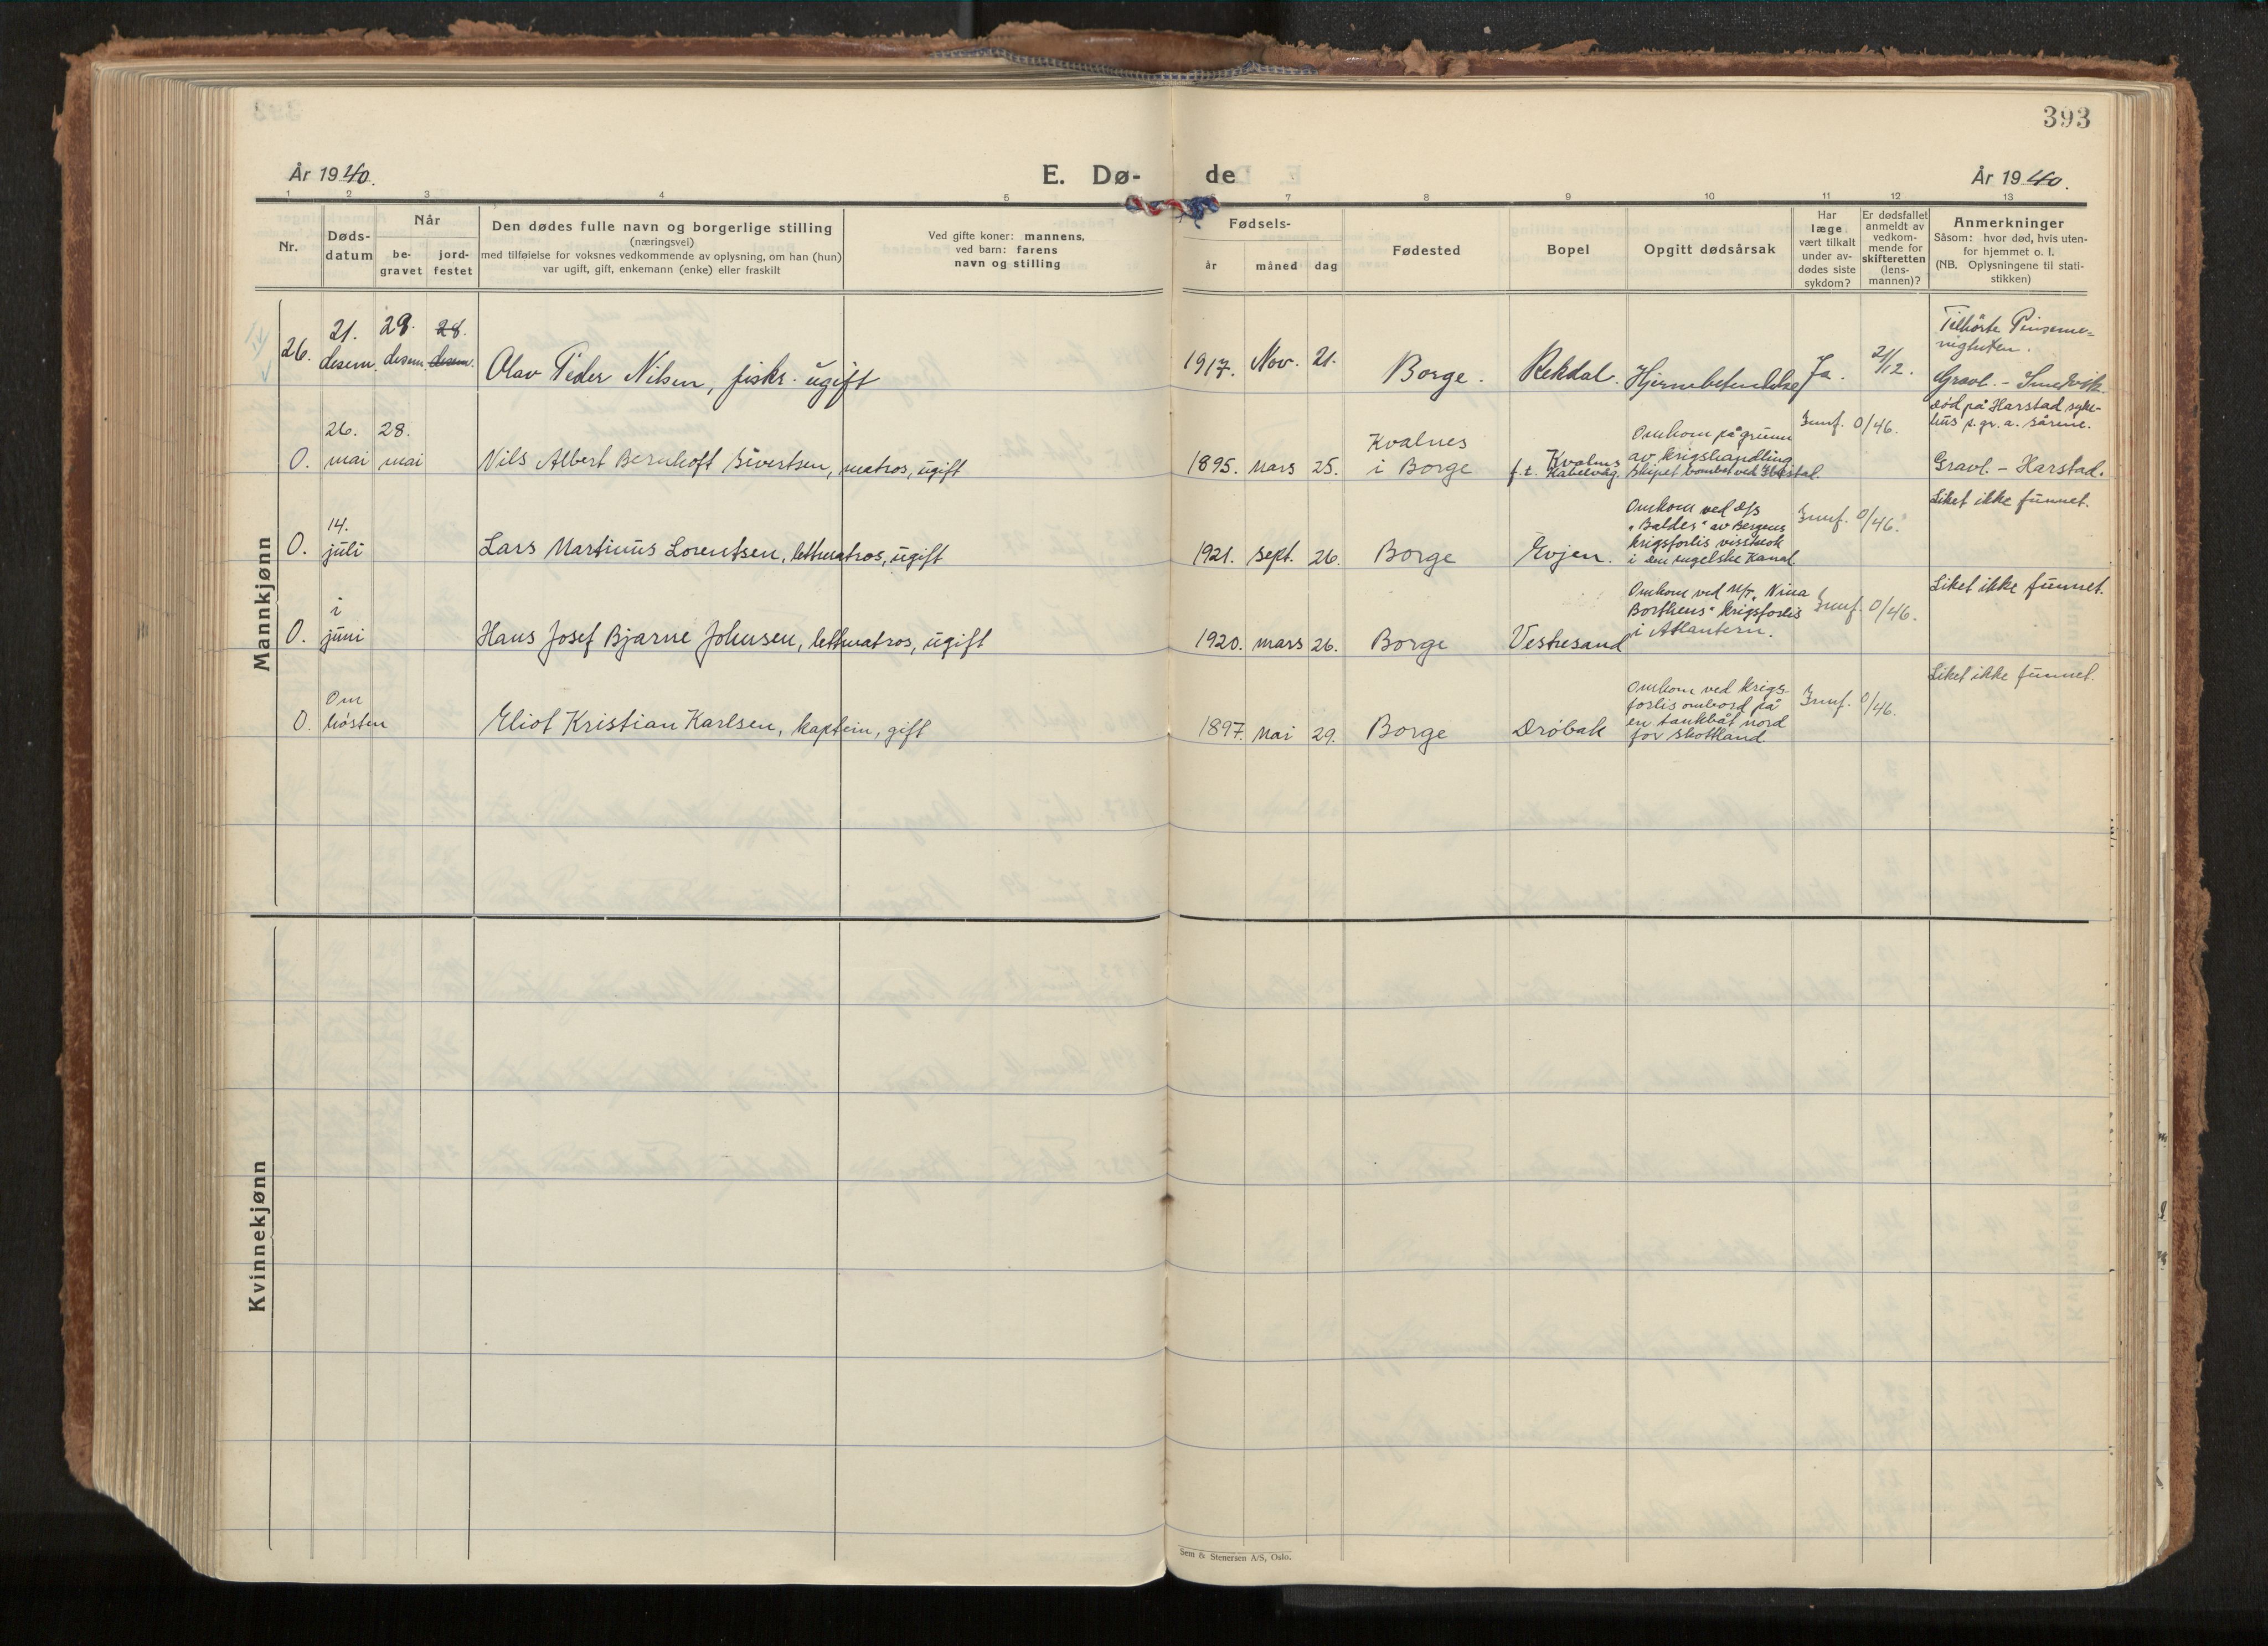 393
År 1940.
E. Dø-
de
År 1940.
1 2 3 4 5 7 8 9 10 11 12 13
Nr.
Døds-
datum
Når
be-
gravet
jord-
festet
Den dødes fulle navn og borgerlige stilling
(næringsvei)
med tilføielse for voksnes vedkommende av oplysning, om han (hun)
var ugift, gift, enkemann (enke) eller fraskilt
Ved gifte koner: mannens,
ved barn: farens
navn og stilling
Fødsels-
år
måned
dag
Fødested
Bopel
Opgitt dødsårsak
Har
læge
vært tilkalt
under av-
dødes siste
sykdom?
Er dødsfallet
anmeldt av
vedkom-
mende for
skifteretten
(lens-
mannen)?
Anmerkninger
Såsom: hvor død, hvis uten-
for hjemmet o. l.
(NB. Oplysningene til stati-
stikken)
Mannkjønn
26.
21.
desem.
28.
desem.
28.
desem.
Olav Peder Nilsen, fisker. ugift
1917. Nov. 21.
Borge.
Rekdal.
Hjernebetendelse
Ja.
21/12.
Tilhörte Pinseme-
nigheten.
Gravl. - Smedvik.
0.
26.
mai
28.
mai
Nils Albert Bernhoft Sivertsen, matros, ugift
1895. mars 25.
Kvalnes
i Borge
Kvalnes
f.t. Kabelvåg.
Omkom på grunn
av krigshandling
Skipet bombet ved
Innf. 0/46.
død på Harstad syke-
hus p. gr. a. sårene.
Gravl. - Harstad.
0.
14.
juli
Lars Martinus Lorentsen, lettmatros, ugift
1921. sept. 26.
Borge
Evjen.
Omkom ved d/s
"Balder" av Bergens
krigsforlis visstnok
i den engelske Kanal
Innf. 0/46.
Liket ikke funnet.
0.
i
juni
Hans Josef Bjarne Johnsen, lettmatros, ugift
1920. mars 26.
Borge
Vestresand
Omkom ved M/T. Nina
Borthens" krigsforlis
i Atlantern.
Innf. 0/46.
Liket ikke funnet.
0.
Om
hösten
Eliot Kristian Karlsen, kaptein, gift
1897. mai 29.
Borge
Dröbak
Omkom ved krigs-
forlis ombord på
en tankbåt nord
for Skottland.
Innf. 0/46.
Liket ikke funnet.
Kvinnekjønn
Sem & Stenersen A/S, Oslo.